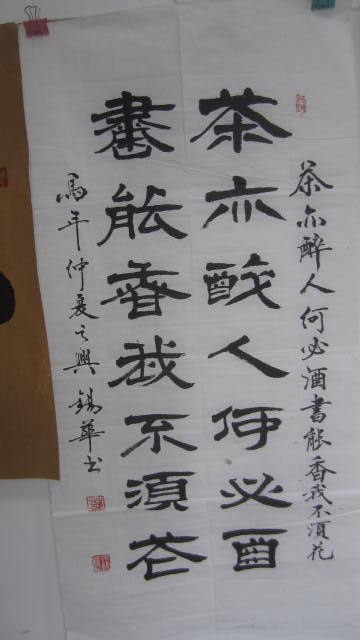 茶亦醉人何必酒書能香我不須花
茶亦醉人何必酉
書能香我不須花
馬年仲夏之興錫華书